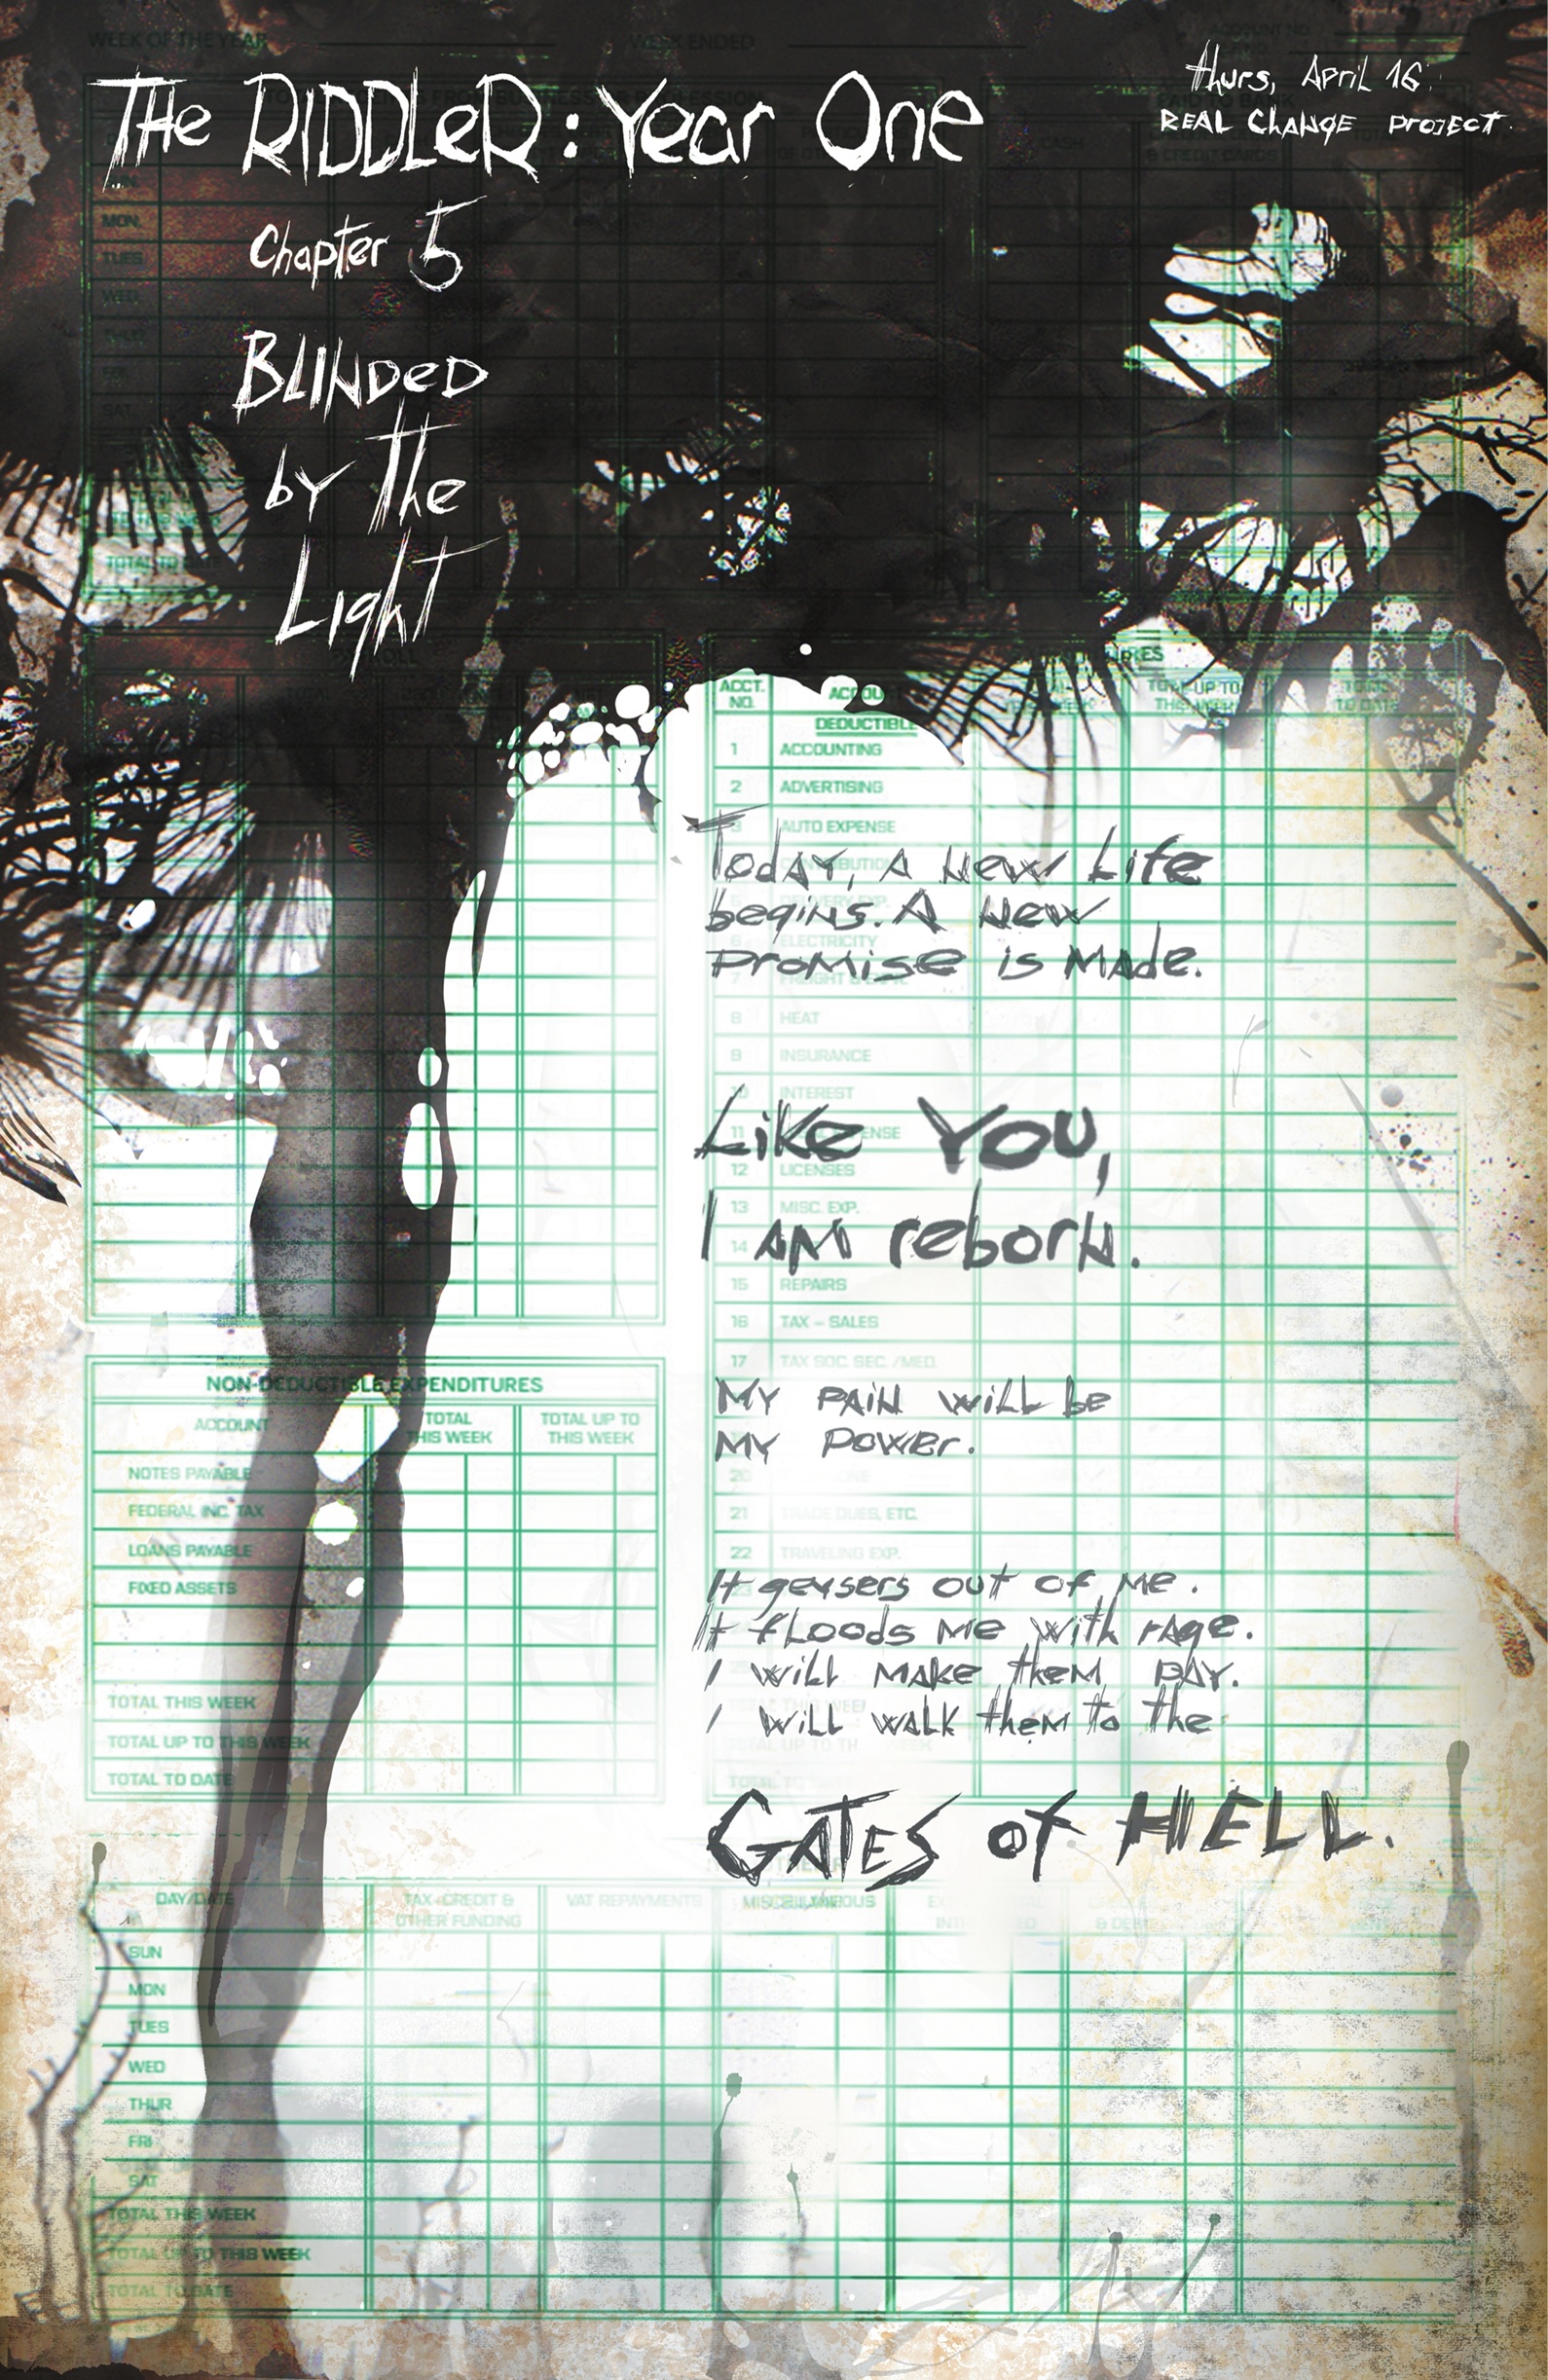 WEEK OF THE YEAR
WEEK ENDED
THe RIDDLeR: Year One
thurs, April 16.
REAL CHANGE PROJECT.
Chapter 5
BLINDeD
by The
Light
MON.
TUES
WED.
THUR
SAT.
ACCT. NO.
DEDUCTIBLE
1 ACCOUNTING
2 ADVERTISING
AUTO EXPENSE
Today, A New Life
begins. A New
Promise is Made.
6 ELECTRICITY
8 HEAT
9 INSURANCE
10 INTEREST
Like YOU,
11
12 LICENSES
13 MISC. EXP.
I AM reborn.
14
15 REPAIRS
16 TAX – SALES
17 TAX SOC. SEC. /MED.
MY PAIN WILL be
MY POWer.
20
21 TRADE DUES, ETC.
22 TRAVELING EXP.
It geysers out of me.
It floods me with rage.
I will make them pay.
I will walk them to the
GATES of HELL.
NON-DEDUCTIBLE EXPENDITURES
ACCOUNT
TOTAL THIS WEEK
TOTAL UP TO THIS WEEK
NOTES PAYABLE
FEDERAL INC. TAX
LOANS PAYABLE
FIXED ASSETS
TOTAL THIS WEEK
TOTAL UP TO THIS WEEK
TOTAL TO DATE
DAY/DATE
TAX-CREDIT & OTHER FUNDING
VAT REPAYMENTS
MISCELLANEOUS
SUN
MON
TUES
WED
THUR
FRI
SAT
TOTAL THIS WEEK
TOTAL UP TO THIS WEEK
TOTAL TO DATE